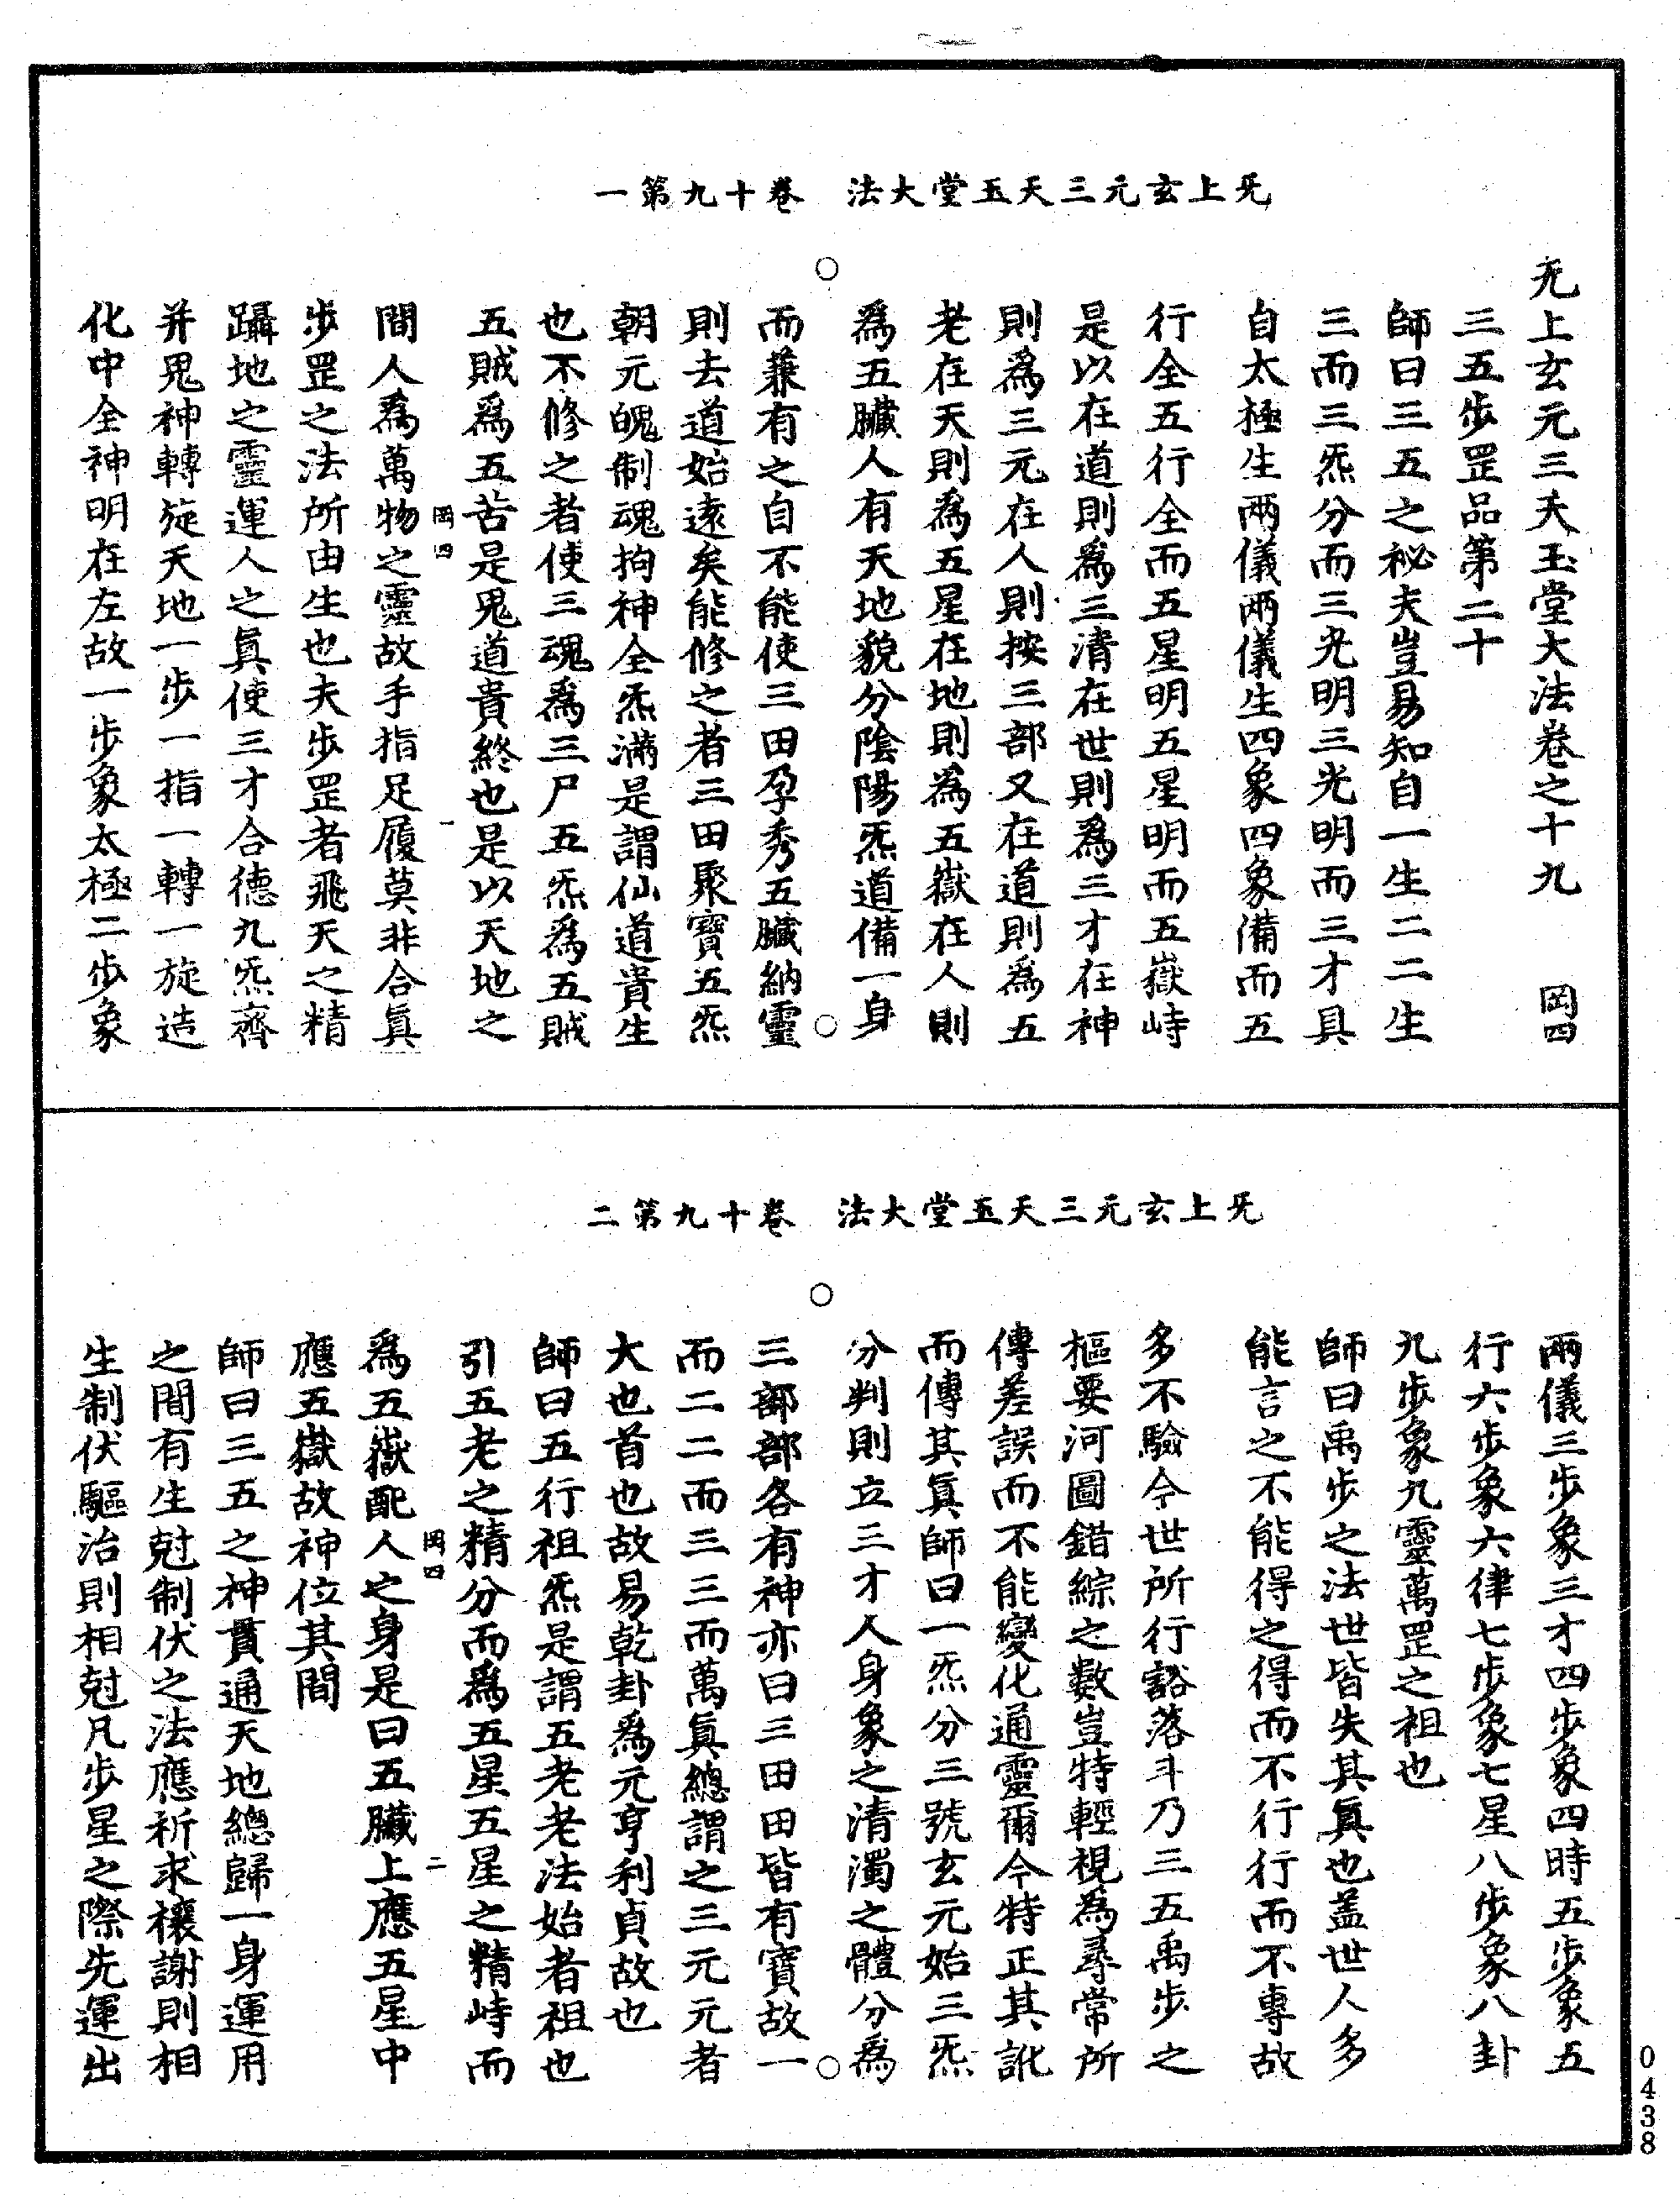 无上玄元三天玉堂大法　卷十九第一
无上玄元三天玉堂大法卷之十九　岡四
三五步罡品第二十
師曰三五之祕夫豈易知自一生二二生
三而三炁分而三光明三光明而三才具
自太極生兩儀兩儀生四象四象備而五
行全五行全而五星明五星明而五嶽峙
是以在道則爲三清在世則爲三才在神
則爲三元在人則按三部又在道則爲五
老在天則爲五星在地則為五嶽在人則
爲五臟人有天地貌分陰陽炁道備一身
而兼有之自不能使三田孕秀五臟納靈
則去道始遠矣能修之者三田聚寶五炁
朝元魄制魂拘神全炁滿是謂仙道貴生
也不修之者使三魂爲三尸五炁爲五賊
五賊爲五苦是鬼道貴終也是以天地之
岡四　一
間人爲萬物之靈故手指足履莫非合眞
步罡之法所由生也夫步罡者飛天之精
躡地之靈運人之眞使三才合德九炁齊
并鬼神轉旋天地一步一指一轉一旋造
化中全神明在左故一步象太極二步象
无上玄元三天玉堂大法　卷十九第二
兩儀三步象三才四步象四時五步象五
行六步象六律七步象七星八步象八卦
九步象九靈萬罡之祖也
師曰禹步之法世皆失其眞也盖世人多
能言之不能得之得而不行行而不專故
多不驗今世所行豁落斗乃三五禹步之
樞要河圖錯綜之數豈特輕視為尋常所
傳差誤而不能變化通靈爾今特正其訛
而傳其眞師曰一炁分三號玄元始三炁
分判則立三才人身象之清濁之體分為
三部部各有神亦曰三田田皆有寶故一
而二二而三三而萬眞總謂之三元元者
大也首也故易乾卦爲元亨利貞故也
師曰五行祖炁是謂五老老法始者祖也
引五老之精分而爲五星五星之精峙而
岡四　二
爲五嶽配人之身是曰五臟上應五星中
應五嶽故神位其間
師曰三五之神貫通天地總歸一身運用
之間有生尅制伏之法應祈求禳謝則相
生制伏驅治則相尅凡步星之際先運出
0438